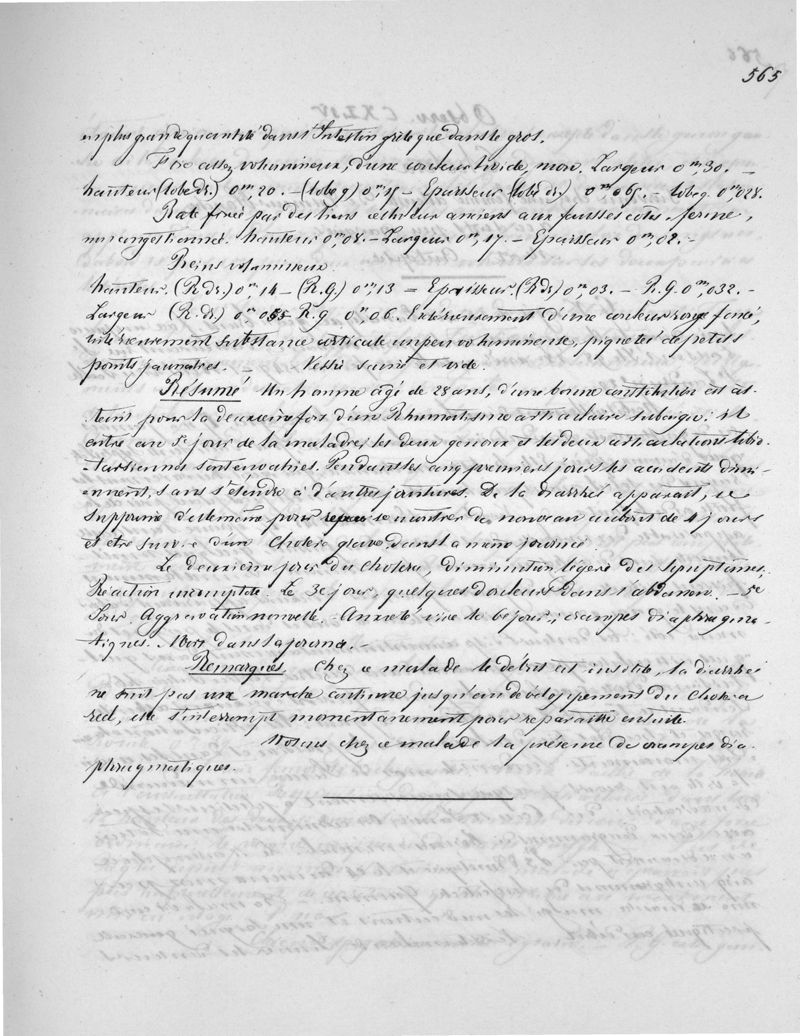 565
en plus grande quantité dans l'Intestin grêle que dans le gros.
Foie assez volumineux, d'une couleur livide, mou. Largeur 0m,30. -
hauteur (lobe dr.) 0m,20. - (lobe g) 0m,15 - Epaisseur (lobe dr) 0m,065. - lobe g. 0m,028.
Rate fixée par des liens celluleux anciens aux fausses côtes, ferme,
non congestionnée. hauteur 0m,08. - Largeur 0m,17 - Epaisseur 0m,02. -
Reins volumineux.
hauteur. (R. dr.) 0m,14 - (R. G.) 0m,13 = Epaisseur. (R dr) 0m,03. - R. G. 0m,032. -
Largeur (R. dr.) 0m 055 R. g 0m,06. Extérieurement d'une couleur rouge foncé,
intérieurement substance corticale un peu volumineuse, piquetée de petits
points jaunâtres. - Vessie saine et vide.
Résumé Un homme âgé de 28 ans, d'une bonne constitution est at-
teint pour la deuxième fois d'un Rhumatisme articulaire subaigu; il
entre au 5e jour de la maladie, les deux genoux et les deux articulations tibio-
-tarsiennes sont envahies. Pendant les cinq premiers jours les accidents dimi-
-nuent, sans s'étendre à d'autres jointures. De la diarrhée apparait, se
supprime d'elle même pour se montrer de nouveau au bout de 4 jours
et être suivie d'un Choléra grave, dans la même journée.
Le deuxième jour du Choléra, diminution légère des symptômes;
Réaction incomplète. Le 3e jour, quelques douleurs dans l'abdomen. - 5e
Jour. Aggravation nouvelle. - Anxiété vive le 6e jour; crampes diaphragma-
-tiques. Mort dans la journée. -
Remarques. Chez ce malade le début est insolite, la diarrhée
ne suit pas une marche continue jusqu'au développement du Choléra
réel, elle s'interrompt momentanément pour reparaitre ensuite.
Notons chez ce malade la présence de crampes dia-
phragmatiques.